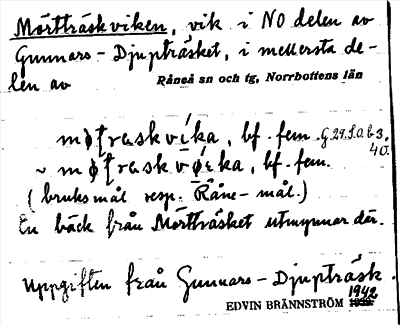 Mörtträskviken, vik i NO delen av
Gunnars-Djupträsket, i mellersta de-
len av Råneå sn och tg, Norrbottens län
bf. fem.
bf. fem.
(bruksmål resp. Råne-mål.)
En bäck från Mörtträsket utmynnar där.
Uppgiften från Gunnars-Djupträsk.
1942
EDVIN BRÄNNSTRÖM